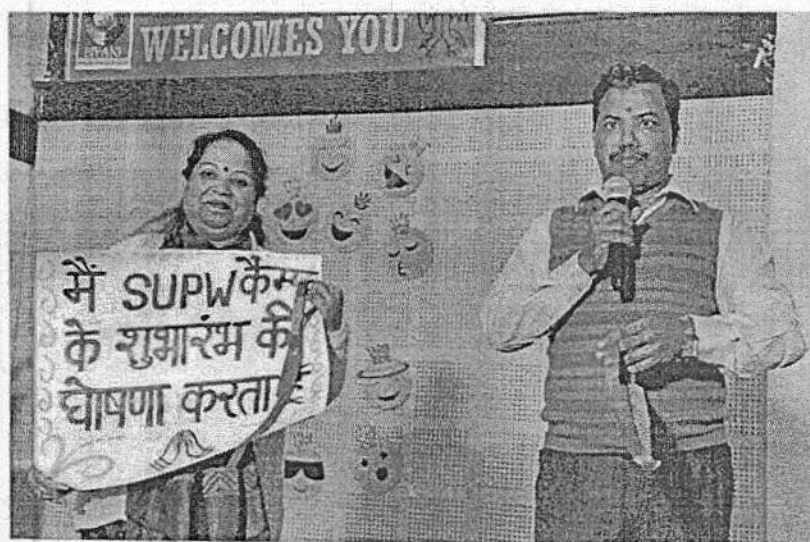 WELCOMES YOU
मैं SUPW कैम्प
के शुभारंभ की
घोषणा करता